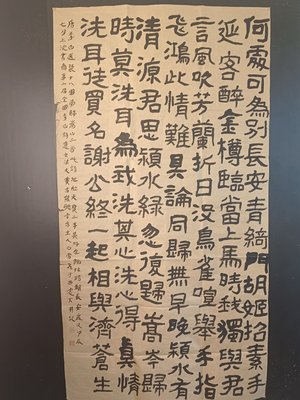 何處可為別長安青綺門胡姬招素手
延客醉金樽臨當上馬時我獨與君
言風吹芳蘭折日没鳥雀喧舉手指
飛鴻此情難具論同歸無早晚潁水有
清源君思潁水綠忽復歸嵩岑歸
時莫洗耳為我洗其心洗心得真情
洗耳徒買名謝公終一起相與濟蒼生
唐李白送裴十八圖南歸嵩山二首